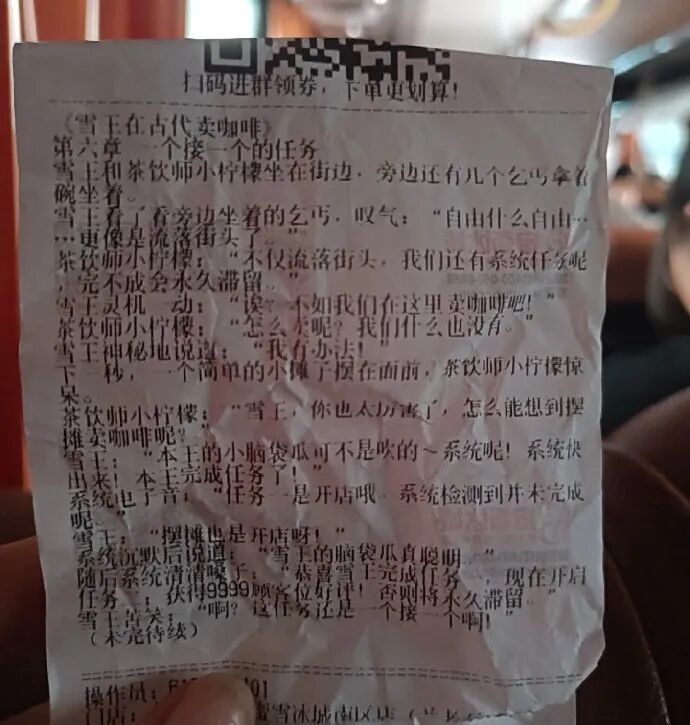 扫码进群领券，下单更划算!
《雪王在古代卖咖啡》
第六章 一个接一个的任务
雪王和茶饮师小柠檬坐在街边，旁边还有几个乞丐拿着
碗坐着。
雪王看了看旁边坐着的乞丐，叹气：“自由什么自由…
…更像是流落街头了。”
茶饮师小柠檬：“不仅流落街头，我们还有系统任务呢
，完不成会永久滞留。”
雪王灵机一动：“诶？不如我们在这里卖咖啡吧！”
茶饮师小柠檬：“怎么卖呢？我们什么也没有。”
雪王神秘地说道：“我有办法！”
下一秒，一个简单的小摊子摆在面前，茶饮师小柠檬惊
呆。
茶饮师小柠檬：“雪王，你也太厉害了，怎么能想到摆
摊卖咖啡呢？”
雪王：“本王的小脑袋瓜可不是吹的～系统呢！系统快
出来！本王完成任务了！”
系统电子音：“任务一是开店哦，系统检测到并未完成
呢。”
雪王：“摆摊也是开店呀！”
系统沉默后说道：“雪王的脑袋瓜真聪明。”
随后系统清清嗓子：“恭喜雪王完成任务一，现在开启
任务二：获得9999位顾客好评！否则将永久滞留。”
雪王苦笑：“啊？这任务还是一个接一个啊！”
（未完待续）
操作员：
门店：雪冰城南区店